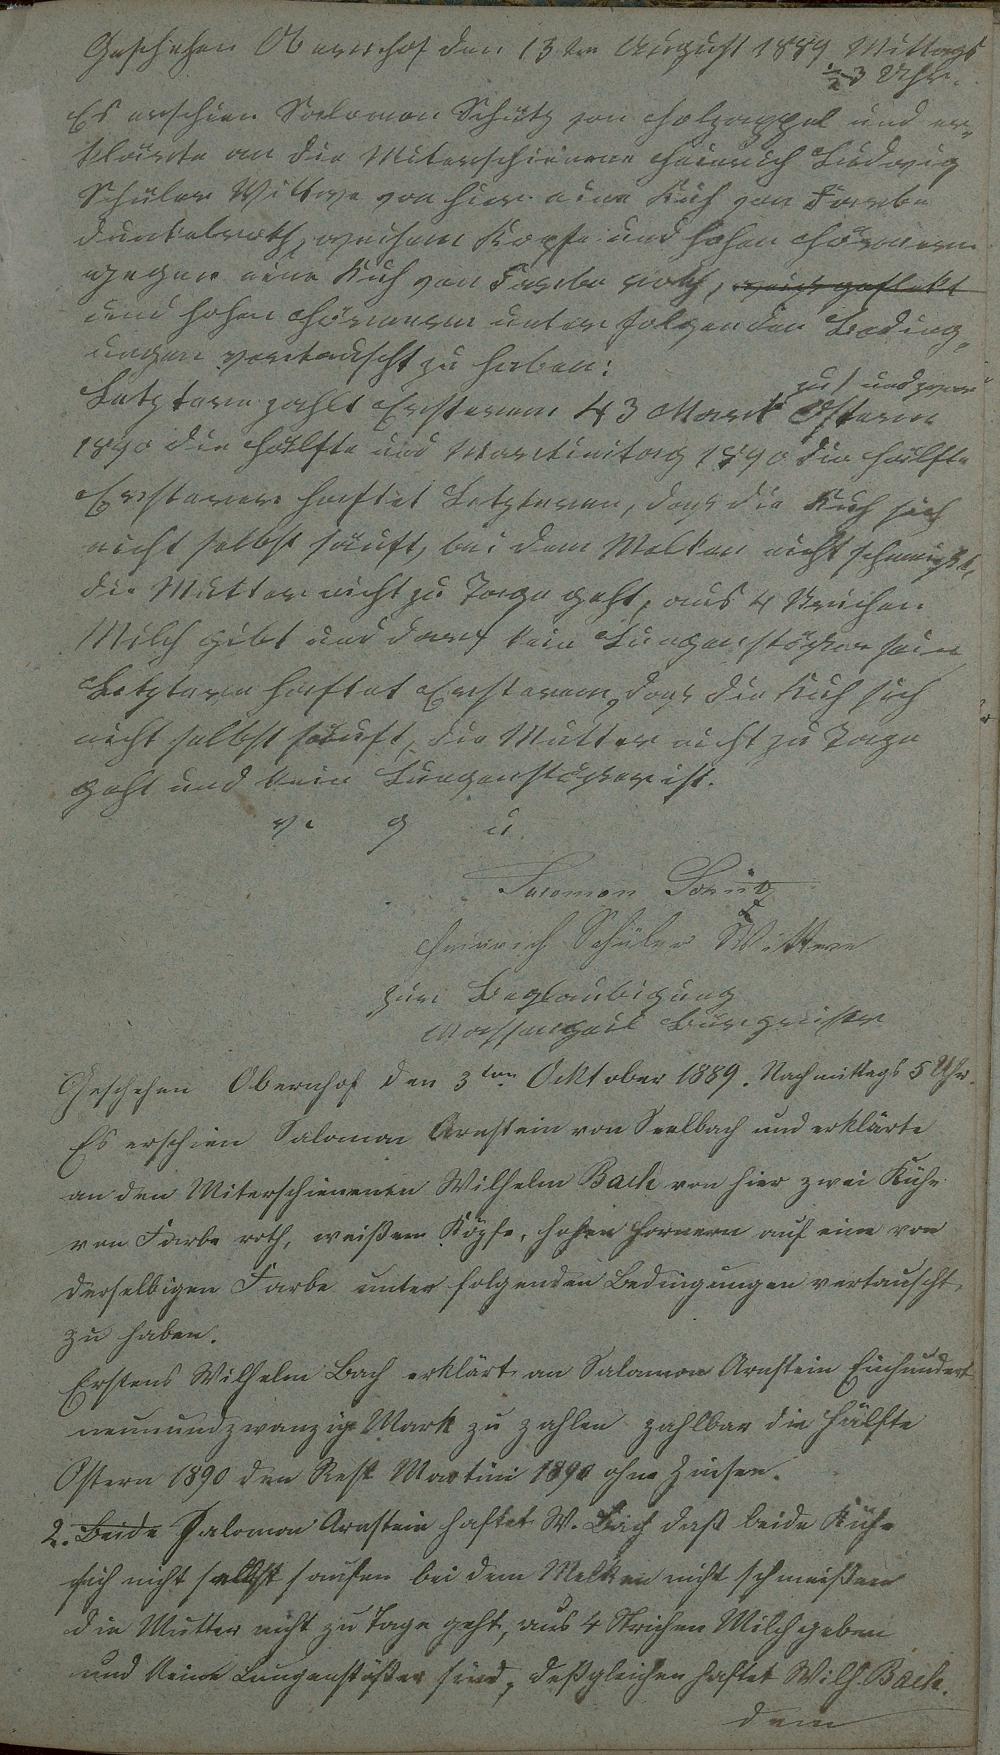 Geschehen Obernhof den 13ten August 1889 Mittags
½ 3 Uhr.
Es erschien Salomon Schütz von Holzappel und er-
klärte an die Miterschienene Heinrich Ludwig
Schüler Wittwe von hier eine Kuh von Farbe
dunkelroth, weisem Kopfe und hohen Hörnern
gegen eine Kuh von Farbe roth, weis gefleckt
und hohen Hörnern unter folgenden Beding-
ungen vertauscht zu haben:
Letztere zahlt Ersterem 43 Mark und zwar
zu Ostern
1890 die Hälfte und Martinitag 1890 die Hälfte
Ersterer haftet Letzteren, dass die Kuh sich
nicht selbst säuft, bei dem Melken nicht schmeißt,
die Mutter nicht zu Tage geht, aus 4 Strichen
Milch gibt und darf kein Lungenstößer sein
Letztere haftet Ersterem, dass die Kuh sich
nicht selbst säuft, die Mutter nicht zu Tage
geht und kein Lungenstößer ist.
v. g. u.
Salomon Schütz
Heinrich Schüler Wittwe
Zur Beglaubigung
Bürgermeister
Geschehen Obernhof den 3ten Oktober 1889. Nachmittags 5 Uhr.
Es erschien Salomon Arnstein von Seelbach und erklärte
an den Miterschienenen Wilhelm Bach von hier zwei Kühe
von Farbe roth, weißem Köpfe, hohen Hornern auf eine von
derselbigen Farbe unter folgenden Bedingungen vertauscht
zu haben.
Erstens Wilhelm Bach erklärt an Salamon Arnstein Einhundert
neunundzwanzig Mark zu zahlen zahlbar die Hälfte
Ostern 1890 den Rest Martini 1890 ohne Zinsen.
2. Beide Salomon Arnstein haftet W. Bach daß beide Kühe
sich nicht selbst saufen bei dem Melken nicht schmeißen
die Mutter nicht zu Tage geht, aus 4 Strichen Milch geben
und keine Lungenstößer sind, deßgleichen haftet Wilh. Bach.
dem